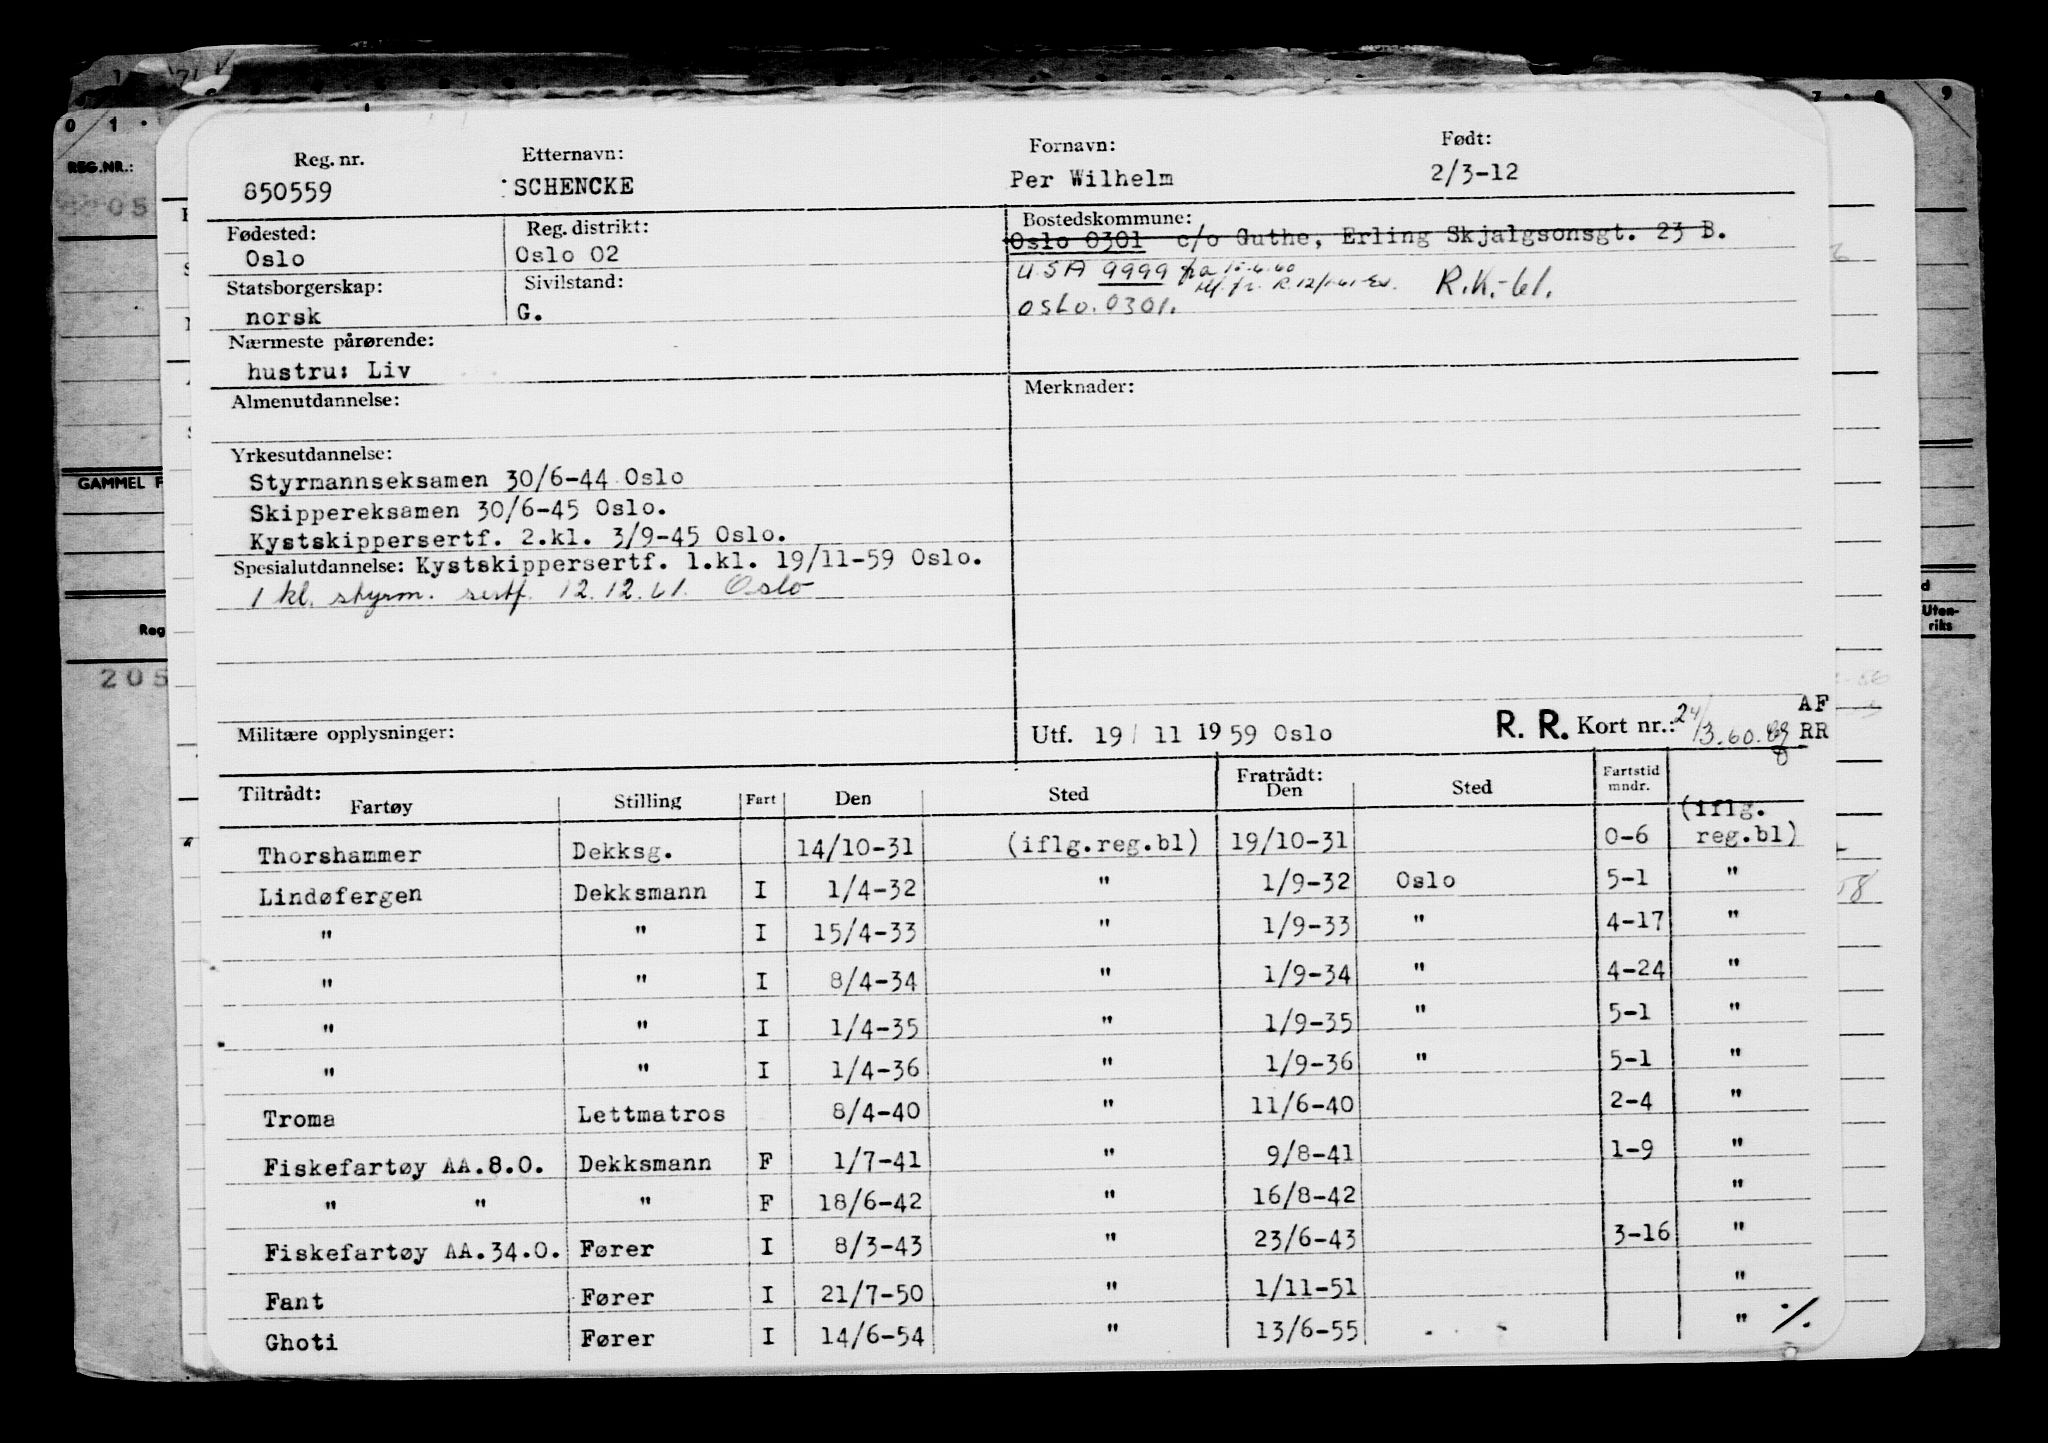 Reg. nr. Etternavn: Fornavn: Født:
850559 SCHENCKE Per Wilhelm 2/3-12
Fødested: Reg. distrikt: Bostedskommune:
Oslo Oslo 02 Oslo 0301 c/o Guthe, Erling Skjalgsonsgt. 23 B.
Statsborgerskap: Sivilstand: USA 9999 R.K.-61.
norsk G. OSLO. 0301.
Nærmeste pårørende:
hustru: Liv
Almenutdannelse: Merknader:
Yrkesutdannelse:
Styrmannseksamen 30/6-44 Oslo
Skippereksamen 30/6-45 Oslo.
Kystskippersertf. 2.kl. 3/9-45 Oslo.
Spesialutdannelse: Kystskippersertf. 1.kl. 19/11-59 Oslo.
1 kl. styrm. sertf. 12.12.61. Oslo
Militære opplysninger: Utf. 19/ 11 1959 Oslo R. R. Kort nr.: 24/3.60. AF RR
Tiltrådt: Fratrådt:
Fartøy Stilling Fart Den Sted Den Sted Fartstid mndr.
(iflg.
Thorshammer Dekksg. 14/10-31 (iflg.reg.bl) 19/10-31 0-6 reg.bl)
Lindøfergen Dekksmann I 1/4-32 " 1/9-32 Oslo 5-1 "
" " I 15/4-33 " 1/9-33 " 4-17 "
" " I 8/4-34 " 1/9-34 " 4-24 "
" " I 1/4-35 " 1/9-35 " 5-1 "
" " I 1/4-36 " 1/9-36 " 5-1 "
Troma Lettmatros 8/4-40 " 11/6-40 2-4 "
Fiskefartøy AA.8.O. Dekksmann F 1/7-41 " 9/8-41 1-9 "
" " " F 18/6-42 " 16/8-42 "
Fiskefartøy AA.34.O. Fører I 8/3-43 " 23/6-43 3-16 "
Fant Fører I 21/7-50 " 1/11-51 "
Ghoti Fører I 14/6-54 " 13/6-55 " ·/.
0 1
REG.NR.:
GAMMEL F
Reg
205
7 8 9
Uten-
riks